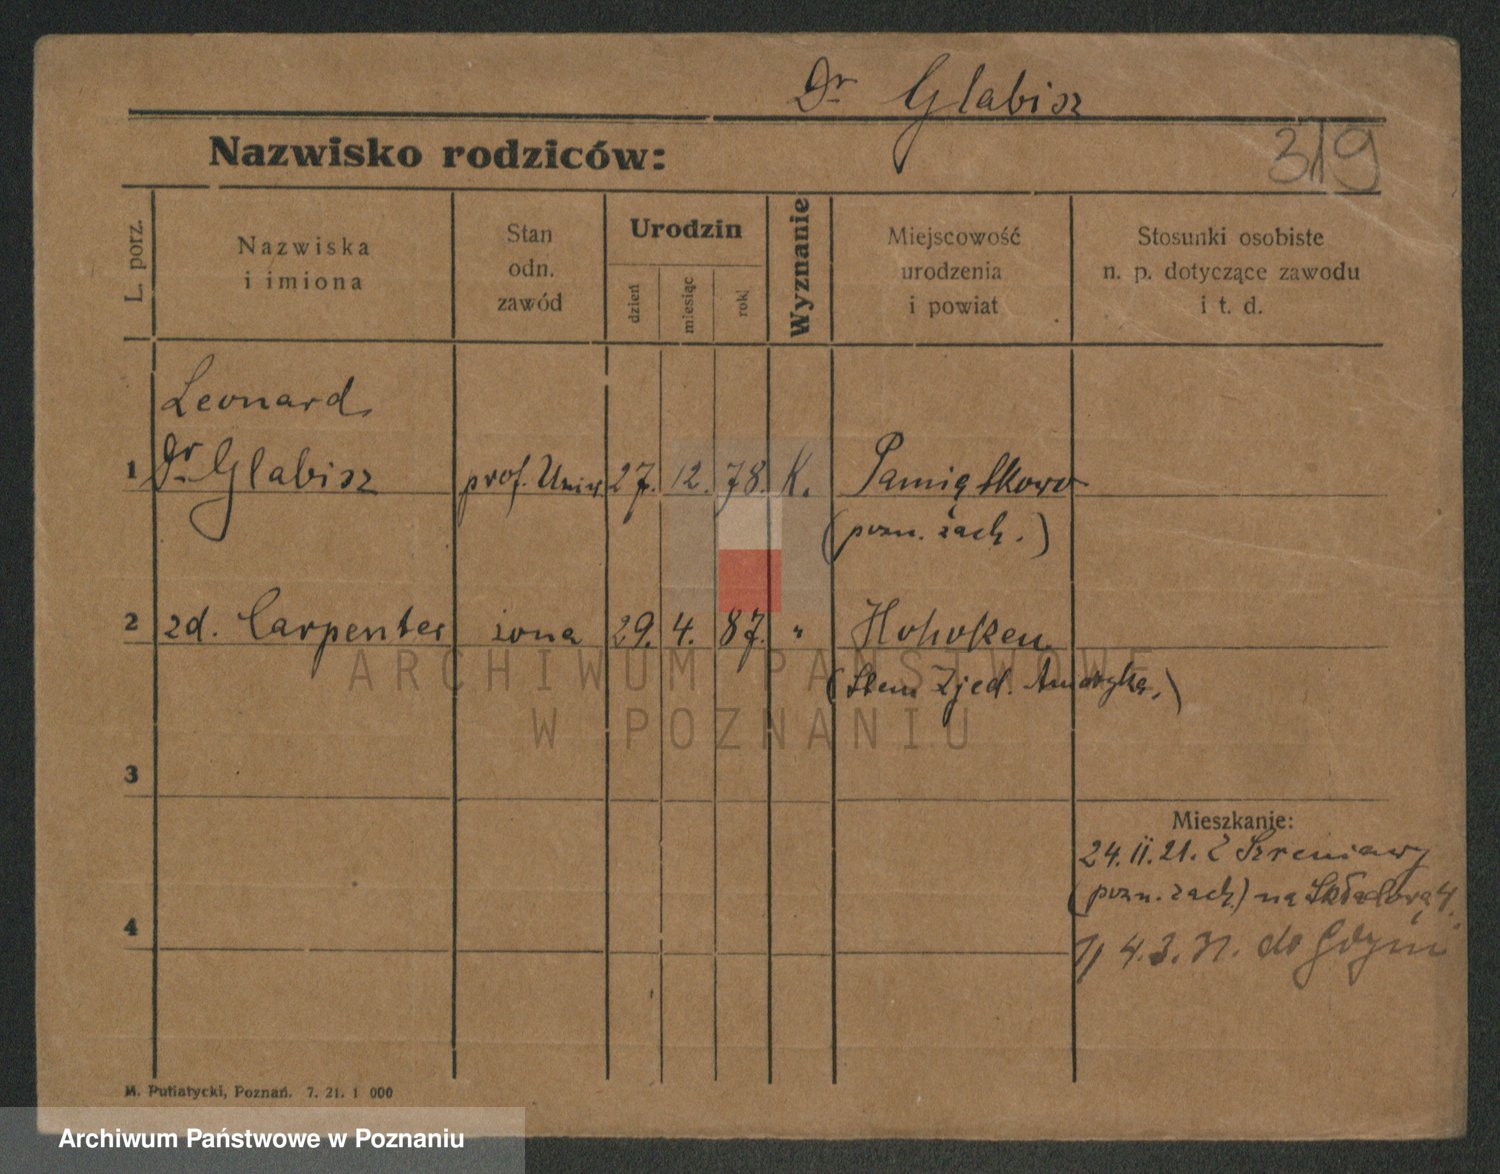 Dr Glabisz
319
Nazwisko rodziców:
L. porz.
Nazwiska
i imiona
Stan
odn.
zawód
Urodzin
dzień
miesiąc
rok
Wyznanie
Miejscowość
urodzenia
i powiat
Stosunki osobiste
n. p. dotyczące zawodu
i t. d.
Leonard
1 Dr Glabisz prof. Uniw. 27. 12. 78. K. Pamiątkowo
(pozn. zach.)
2 zd. Carpenter żona 29. 4. 87. " Hoboken
(Stan. Zjed. Ameryka.)
ARCHIWUM PAŃSTWOWE
W POZNANIU
3
Mieszkanie:
24. II. 21. z Szreniawy
(pozn. zach.) na Składową 4.
4
4. 3. 31. do Gdyni
M. Putiatycki, Poznań. 7. 21. 1 000
Archiwum Państwowe w Poznaniu